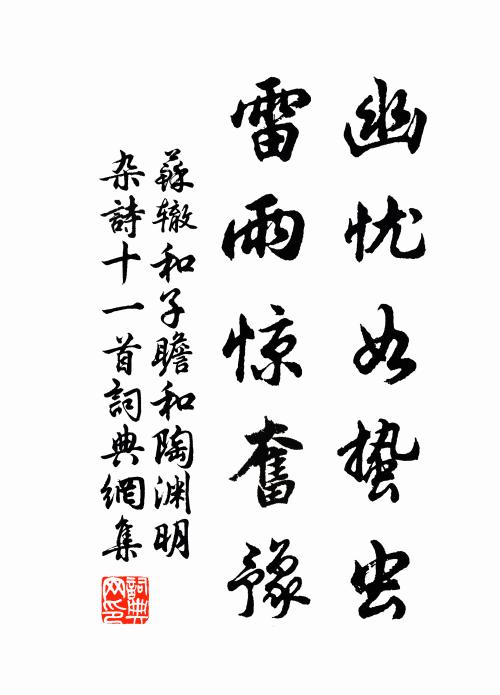 幽忧如蛰虫
雷雨惊奋豫
蘇辙和子瞻和陶渊明
杂詩十一首詞典網集
詞典网印